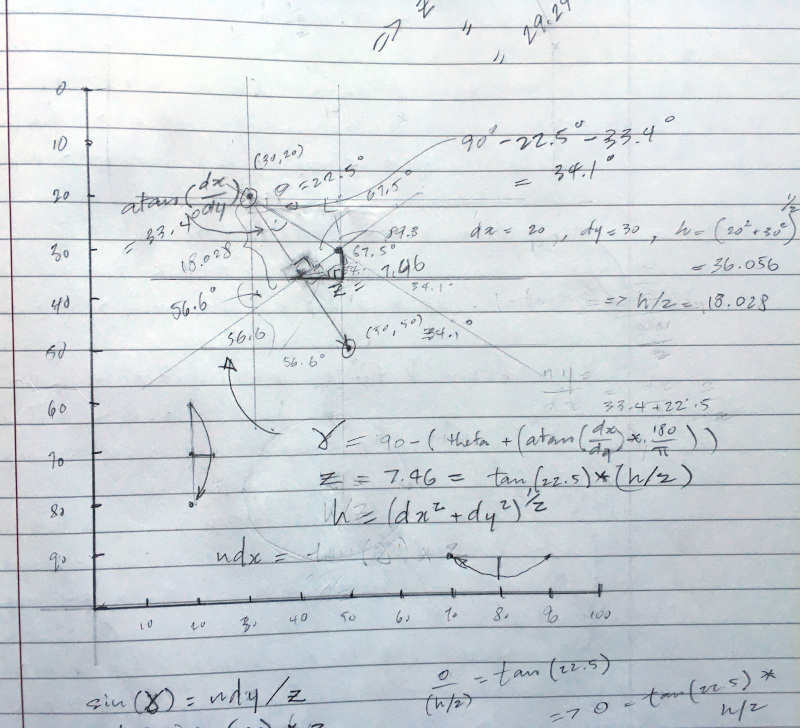 z " 29.29
"
0
10
90° - 22.5° - 33.4°
= 34.1°
(30,20)
20
atan(dx/dy)
θ = 22.5°
67.5°
= 33.4°
dx = 20 , dy = 30 , h = (20² + 30²)^1/2
= 36.056
=> h/2 = 18.028
30
18.028
67.5°
7.46
z =
34.1°
40
56.6°
56.6
50
56.6°
(50,50)
34.1°
33.4+22.5
60
γ = 90 - (theta + (atan(dx/dy) * 180/π))
70
z = 7.46 = tan(22.5) * (h/2)
80
h = (dx² + dy²)^1/2
90
ndx =
10 20 30 40 50 60 70 80 90 100
sin(γ) = ndy/z
o/(h/2) = tan(22.5)
=> o = tan(22.5) * h/2